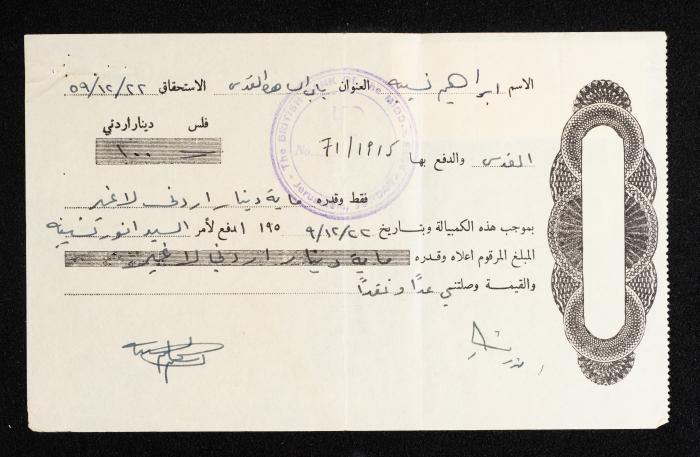 الاسم ابراهيم نسيبه العنوان باب الساهره القدس الاستحقاق ٥٩/١٢/٢٢
فلس دينار اردني
١٠٠
القدس والدفع بها
The BRITISH BANK OF The MIDDLE EAST
Jerusalem
No. 71/1915
فقط وقدره ماية دينار اردني لا غير
بموجب هذه الكمبيالة وبتاريخ ٩/١٢/٢٢ ١٩٥ ادفع لأمر السيد انور نسيبه
المبلغ المرقوم اعلاه وقدره ماية دينار اردني لا غير
والقيمة وصلتني عدًا ونقدًا